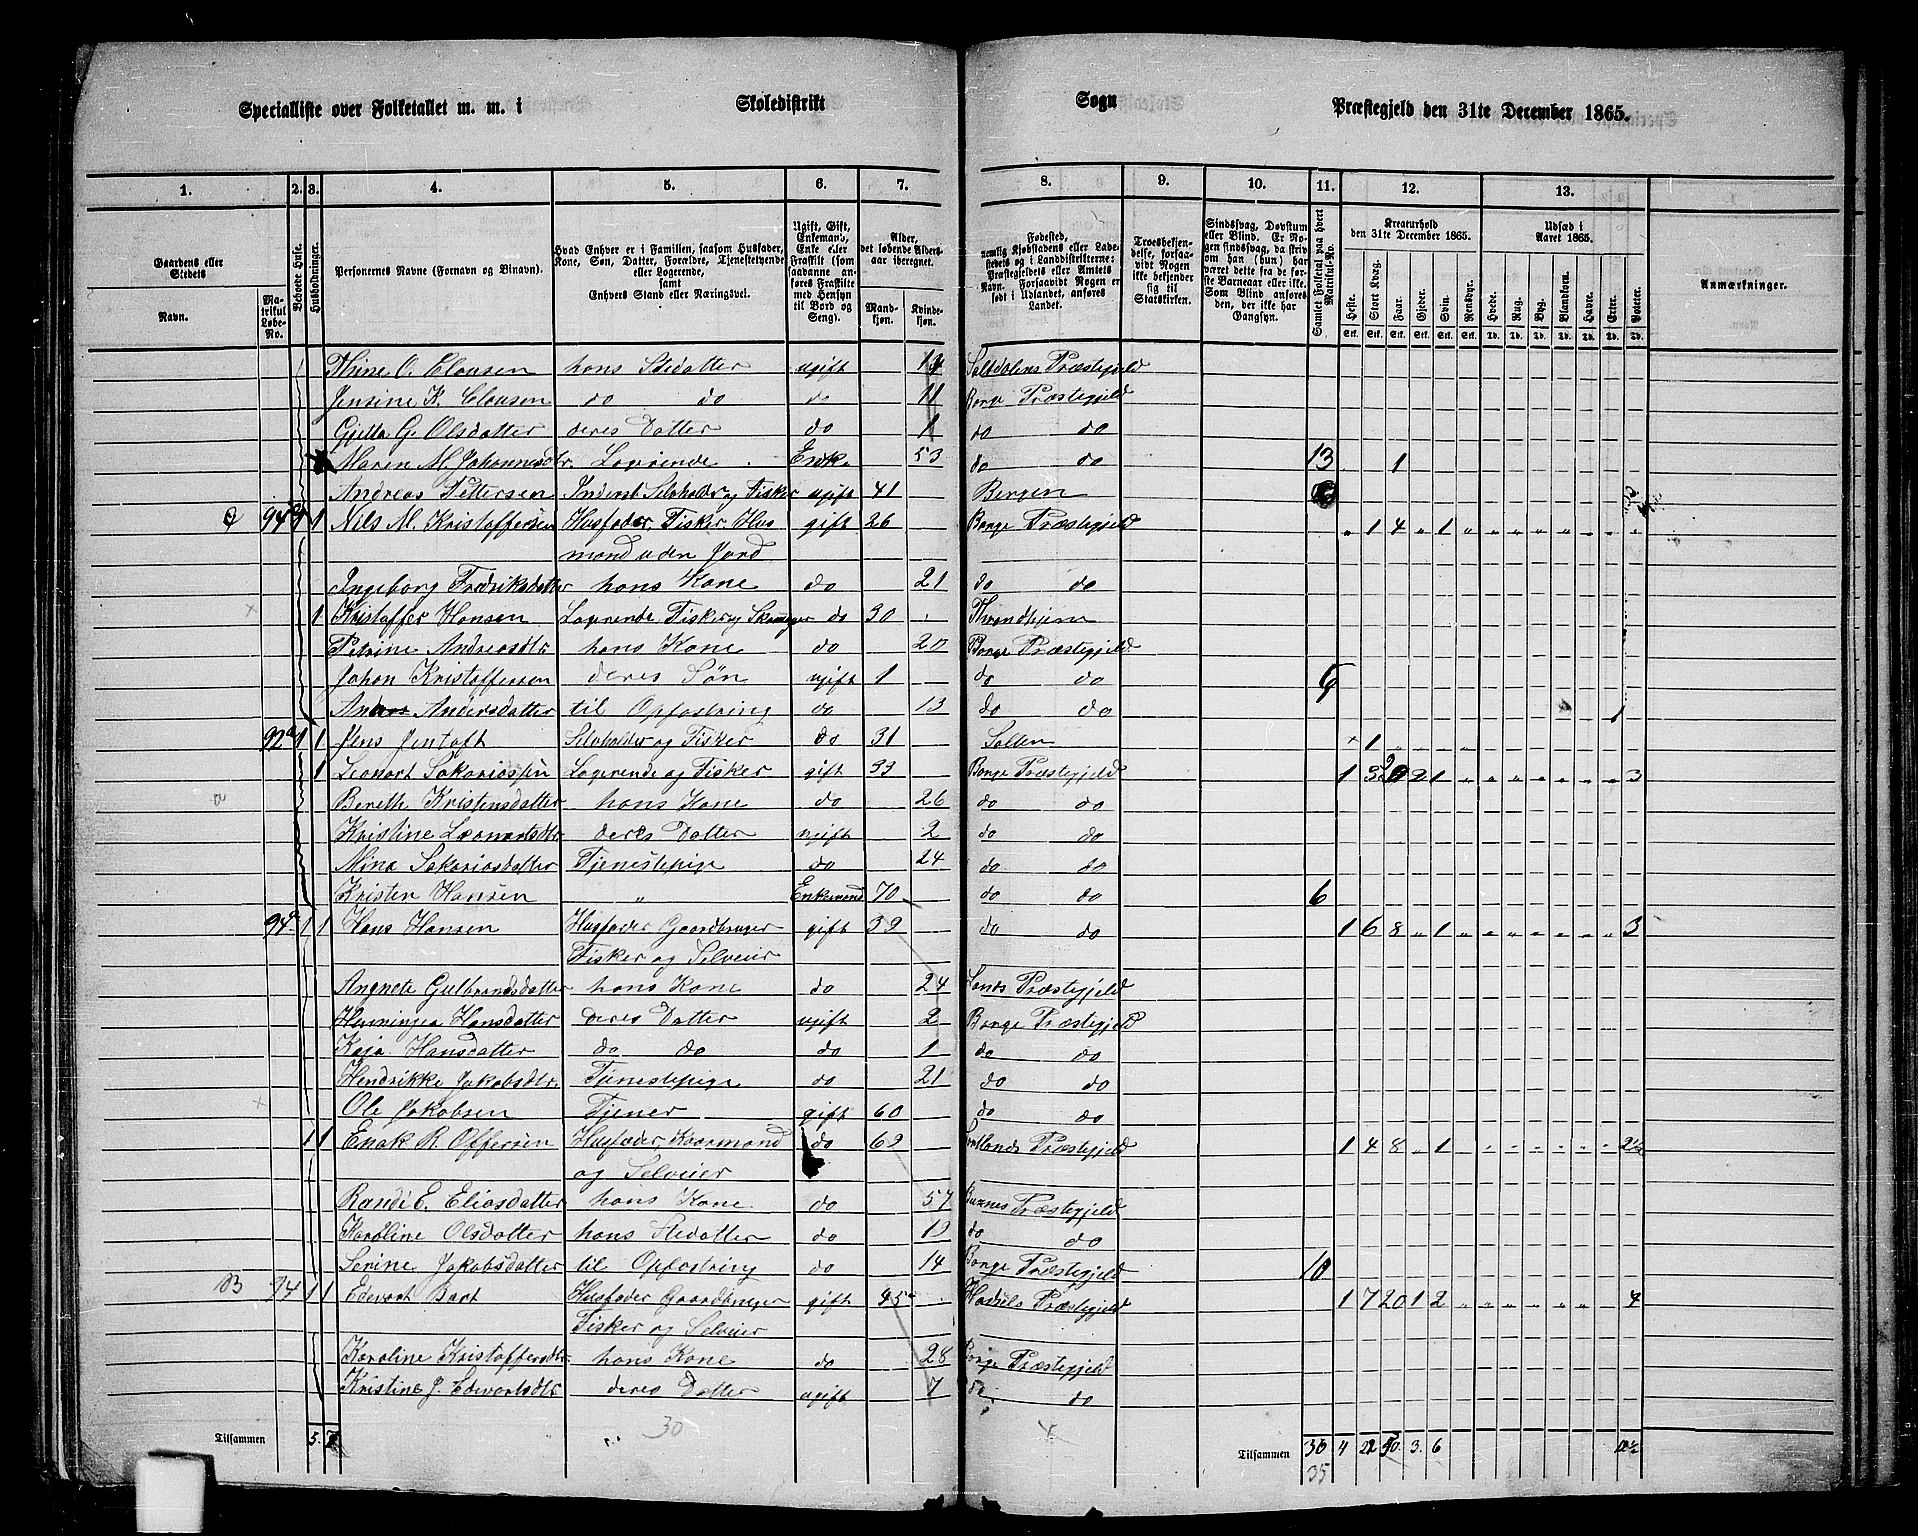 Specialliste over Folketallet m. m. i Skoledistrikt Sogn Præstegjeld den 31te December 1865.
1. 2. 3. 4. 5. 6. 7. 8. 9. 10. 11. 12. 13.
Gaardens eller Stedets Navn. Matrikul Løbe-No. Beboede Huse. Husholdninger. Personernes Navne (Fornavn og Binavn). Hvad Enhver er i Familien, saasom Husfader, Kone, Søn, Datter, Forældre, Tjenestetyende eller Logerende, samt Enhvers Stand eller Næringsvei. Ugift, Gift, Enkemand, Enke eller Fraskilt (som saadanne anføres Fraskilte med Hensyn til Bord og Seng). Alder, det løbende Aldersaar iberegnet. Mandkjøn. Kvindekjøn.
Fødested, nemlig Kjøbstadens eller Ladestedets og i Landdistrikterne: Præstegjeldets eller Amtets Navn. Forsaavidt Nogen er født i Udlandet, anføres Landet. Troesbekjendelse, forsaavidt Nogen ikke bekjender sig til Statskirken. Sindssvag, Døvstum eller Blind. Er Nogen sindssvag, da skrives om han (hun) har været dette fra de første Barneaar eller ikke. Som Blind anføres den, der ikke har Gangsyn. Samlet Folketal paa hvert Matrikul-No. Kreaturhold den 31te December 1865. Udsæd i Aaret 1865. Anmærkninger.
Heste. Stort Kvæg. Faar. Gjeder. Svin. Rensdyr. Hvede. Rug. Byg. Blandkorn. Havre. Erter. Poteter.
Thrine O. Clausen hans Stedatter ugift Saltdalens Præstegjeld
Jensine K. Clausen do do do 11 Borge Præstegjeld
Gjetta G. Olsdatter deres Datter do 1 do do
Maren M. Johannesdtr. Logerende Enk. 53 do do 13 1
Andreas Pettersen Inderst Selvholder og Fisker ugift 41 Bergen
94 1 1 Nils M. Kristoffersen Husfader Fisker Hus gift 26 Borge Præstegjeld 1 4 „ 1 „
mand uden Jord
Ingeborg Fredriksdatter hans Kone do 21 do do
1 Kristoffer Hansen Logerende Fisker og Skomager do 30 Throndhjem
Petrine Andreasdtr hans Kone do 20 Borge Præstegjeld
Johan Kristoffersen deres Søn ugift 1 do do
Andersdatter til Opfostring do 13 do do
92 1 1 Jens Jentoft Selvholder og Fisker do 31 Salten 1
1 Leonart Sakariassen Logerende og Fisker gift 33 Borge Præstegjeld 1 3 2 1 3
Bereth Kristensdatter hans Kone do 26 do do
Kristine Leonartsdtr. deres Datter ugift 2 do do
Mina Sakariasdatter Tjenestepige do 24 do do
Kristen Hansen „ Enkemand 70 do do 6
94 1 1 Hans Hansen Husfader Gaardbruger gift 39 do do 1 6 8 „ 1 „ 3
Fisker og Selveier
Angnete Gulbrandsdatter hans Kone do 24 Præstegjeld
Henningea Hansdatter deres Datter ugift 2 Borge Præstegjeld
Kaja Hansdatter do do do 1 do do
Hendrikke Jakobsdtr. Tjenestepige do 21 do do
Ole Jakobsen Tjener gift 60 do do
1 1 Enok R. Offersen Husfader Kaarmand do 69 Præstegjeld 1 4 8 „ 1 2½
og Selveier
Randi E. Eliasdatter hans Kone do 57 Buxnes Præstegjeld
Karoline Olsdatter hans Stedatter do 19 do do
Serine Jakobsdatter til Opfostring do 14 Borge Præstegjeld 10
B 94 1 1 Edevart Bart Husfader Gaardbruger gift 45 Hadsels Præstegjeld 1 7 20 1 2 „ 4
Fisker og Selveier
Karoline Kristoffersdtr. hans Kone do 28 Borge Præstegjeld
Kristine J. Edevartsdtr deres Datter ugift 7 do do
Tilsammen 5. 7 30 4 Tilsammen 4 22 50. 3. 6
35